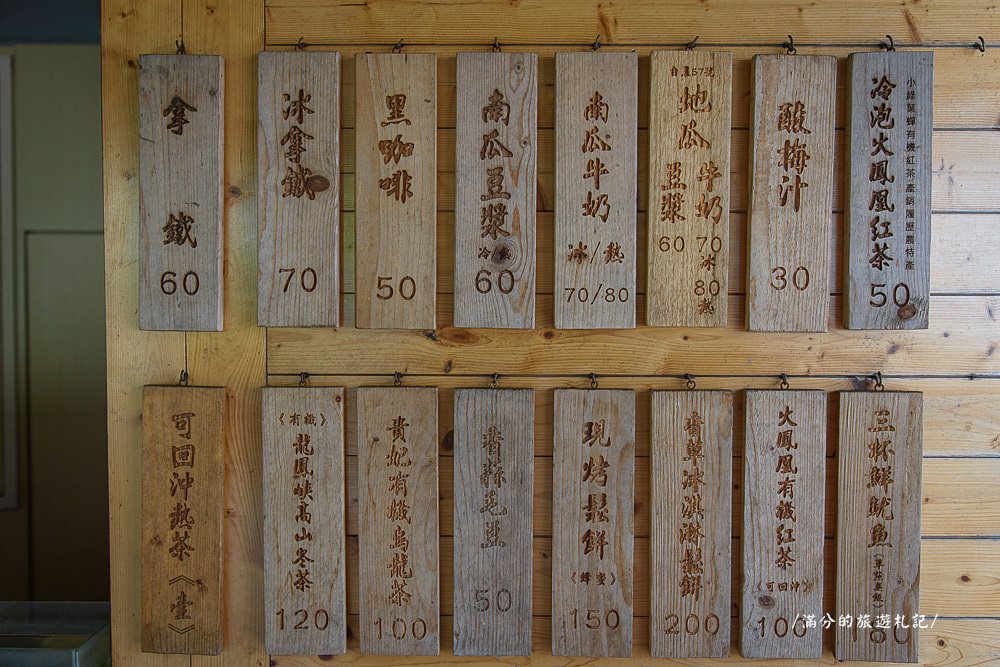 拿鐵
60
冰拿鐵
70
黑咖啡
50
南瓜豆漿
冷/熱
60
南瓜牛奶
冰/熱
70/80
自農57號
地瓜
牛奶
70冰
80熱
豆漿
60
酸梅汁
30
小綠葉蟬有機紅茶產銷履歷農特產
冷泡火鳳凰紅茶
50
可回沖熱茶《壹》
《有機》
龍鳳峽高山冬茶
120
貴妃有機烏龍茶
100
香蒜毛豆
50
現烤鬆餅
《蜂蜜》
150
香草冰淇淋鬆餅
200
火鳳凰有機紅茶
《可回沖》
100
三杯鮮魷魚
80
/滿分的旅遊札記/